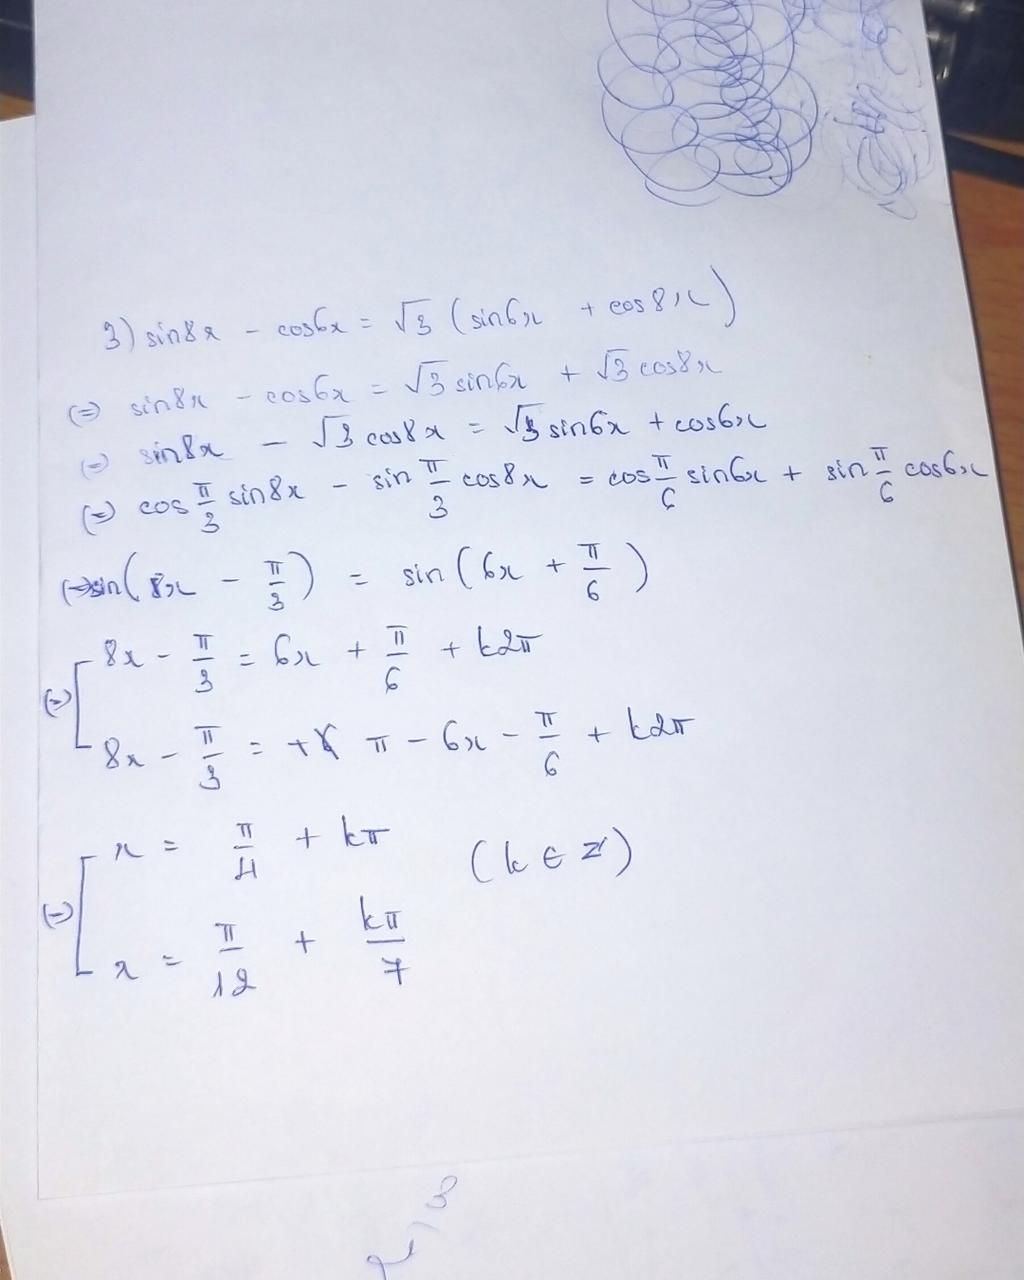 3) sin8x - cos6x = √3 (sin6x + cos8x)
(=) sin8x - cos6x = √3 sin6x + √3 cos8x
(=) sin8x - √3 cos8x = √3 sin6x + cos6x
(=) cos π/3 sin8x - sin π/3 cos8x = cos π/6 sin6x + sin π/6 cos6x
(=) sin(8x - π/3) = sin(6x + π/6)
(=) [ 8x - π/3 = 6x + π/6 + k2π
8x - π/3 = + π - 6x - π/6 + k2π
(=) [ x = π/4 + kπ (k ∈ Z)
x = π/12 + kπ/7